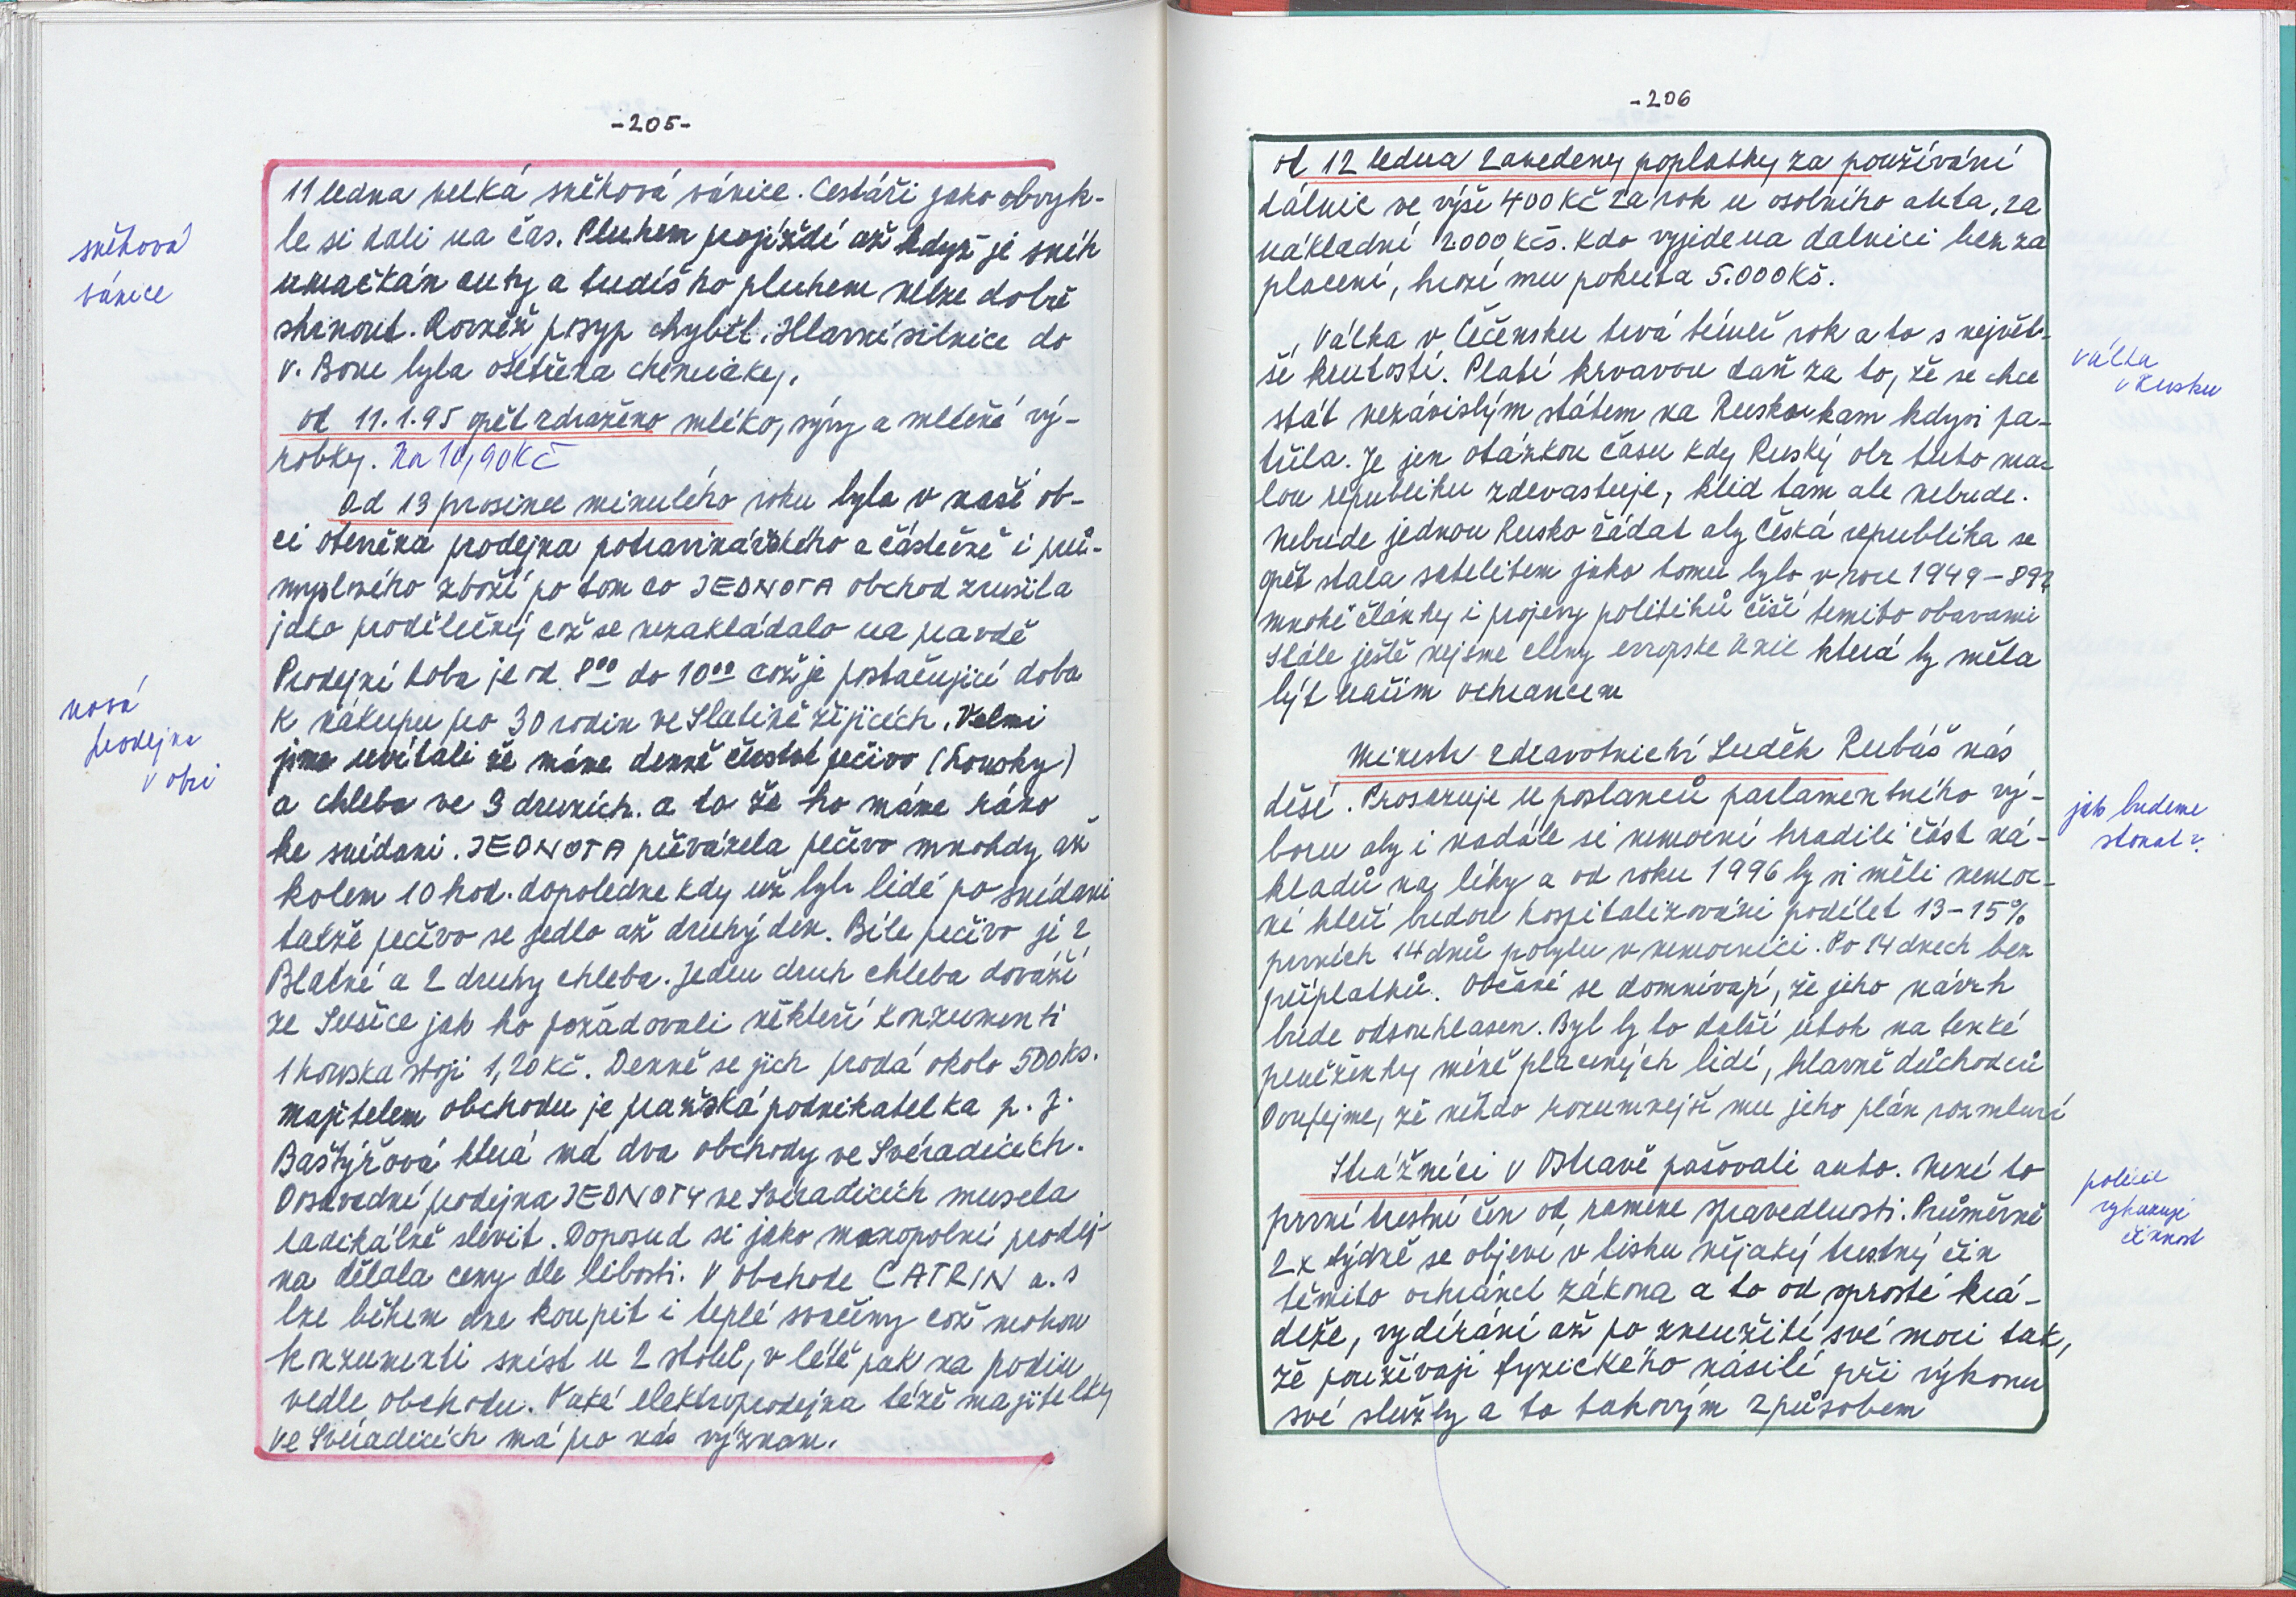 -205-
sněhová
vánice
11 ledna velká sněhová vánice. Cestáři jako obvyk-
le si dali na čas. Pluhem projíždí až když je sníh
umačkán auty a tudíš ho pluhem nelze dobře
shrnout. Rovněž posyp chyběl. Hlavní silnice do
V. Boru byla ošetřena chemiáky.
od 11.1.95 opět zdraženo mléko, sýry a mléčné vý-
robky. Na 10,90 Kč
Od 13 prosince minulého roku byla v naší ob-
ci otevřena prodejna potravinářského a částečně i prů-
myslného zboží po tom co JEDNOTA obchod zrušila
jako prodělečný což se nezakládalo na pravdě
Prodejní doba je od 8⁰⁰ do 10⁰⁰ což je postačující doba
k nákupu pro 30 rodin ve Slatině žijících. Velmi
nová
prodejna
v obci
jsme uvítali že máme denně čerstvé pečivo (housky)
a chleba ve 3 druzích. a to že ho máme ráno
ke snídani. JEDNOTA přivážela pečivo mnohdy až
kolem 10 hod. dopoledne kdy už byli lidé po snídani
takže pečivo se jedlo až druhý den. Bíle pečivo je z
Blatné a 2 druhy chleba. Jeden druh chleba dováží
ze Sušice jak ho požadovali někteří konzumenti
1 houska stojí 1,20 Kč. Denně se jich prodá okolo 500 ks.
Majitelem obchodu je pražská podnikatelka p. J.
Baštýřová která má dva obchody ve Svéradicích.
Dosavadní prodejna JEDNOTY ve Svéradicích musela
radikálně slevit. Doposud si jako monopolní prodej-
na dělala ceny dle libosti. V obchode CATRIN a. s
lze během dne koupit i teplé svačiny což mohou
konzumenti sníst u 2 stolů, v létě pak na podiu
vedle obchodu. Také elektroprodejna téže majitelky
ve Svéradicích má pro nás význam.
-206
od 12 ledna zavedeny poplatky za používání
dálnic ve výši 400 Kč za rok u osobního auta, za
nákladní 2000 Kčs. Kdo vyjide na dalnici bez za
placení, hrozí mu pokuta 5.000 Kš.
Válka v Čečensku trvá téměř rok a to s největ-
ší krutostí. Platí krvavou daň za to, že se chce
válka
v Rusku
stát nezávislým státem na Rusku kam kdysi pa-
třila. Je jen otázkou času kdy Ruský obr tuto ma-
lou republiku zdevastuje, klid tam ale nebude.
Nebude jednou Rusko žádat aby Česká republika se
opět stala satelitem jako tomu bylo v roce 1949-89?
mnohé články i projevy politiků čiší temito obavami
Stále ještě nejsme členy evropske Unie která by měla
být našim ochrancem
Ministr zdravotnictví Luděk Rubáš nás
děsí. Prosazuje u poslanců parlamentního vý-
boru aby i nadále si nemocní hradili část ná-
jak budeme
stonat?
kladů na léky a od roku 1996 by si měli nemoc-
ní kteří budou hospitalizováni podílet 13-15%
prvních 14 dnů pobytu v nemocnici. Po 14 dnech bez
příplatků. Občané se domnívají, že jeho návrh
bude odsouhlasen. Byl by to další útok na tenké
peněženky méně placených lidí, hlavně důchodců
Doufejme, že někdo rozumnejší mu jeho plán rozmluví
Strážníci v Ostravě pašovali auto. Není to
první trestní čin od ramene spravedlnosti. Průměrně
policie
vykazuje
činnost
2x týdně se objeví v tisku nějaký trestný čin
těmito ochránci zákona a to od sprosté krá-
deže, vydírání až po zneužití své moci tak,
že používají fyzického násilí při výkonu
své služby a to takovým způsobem